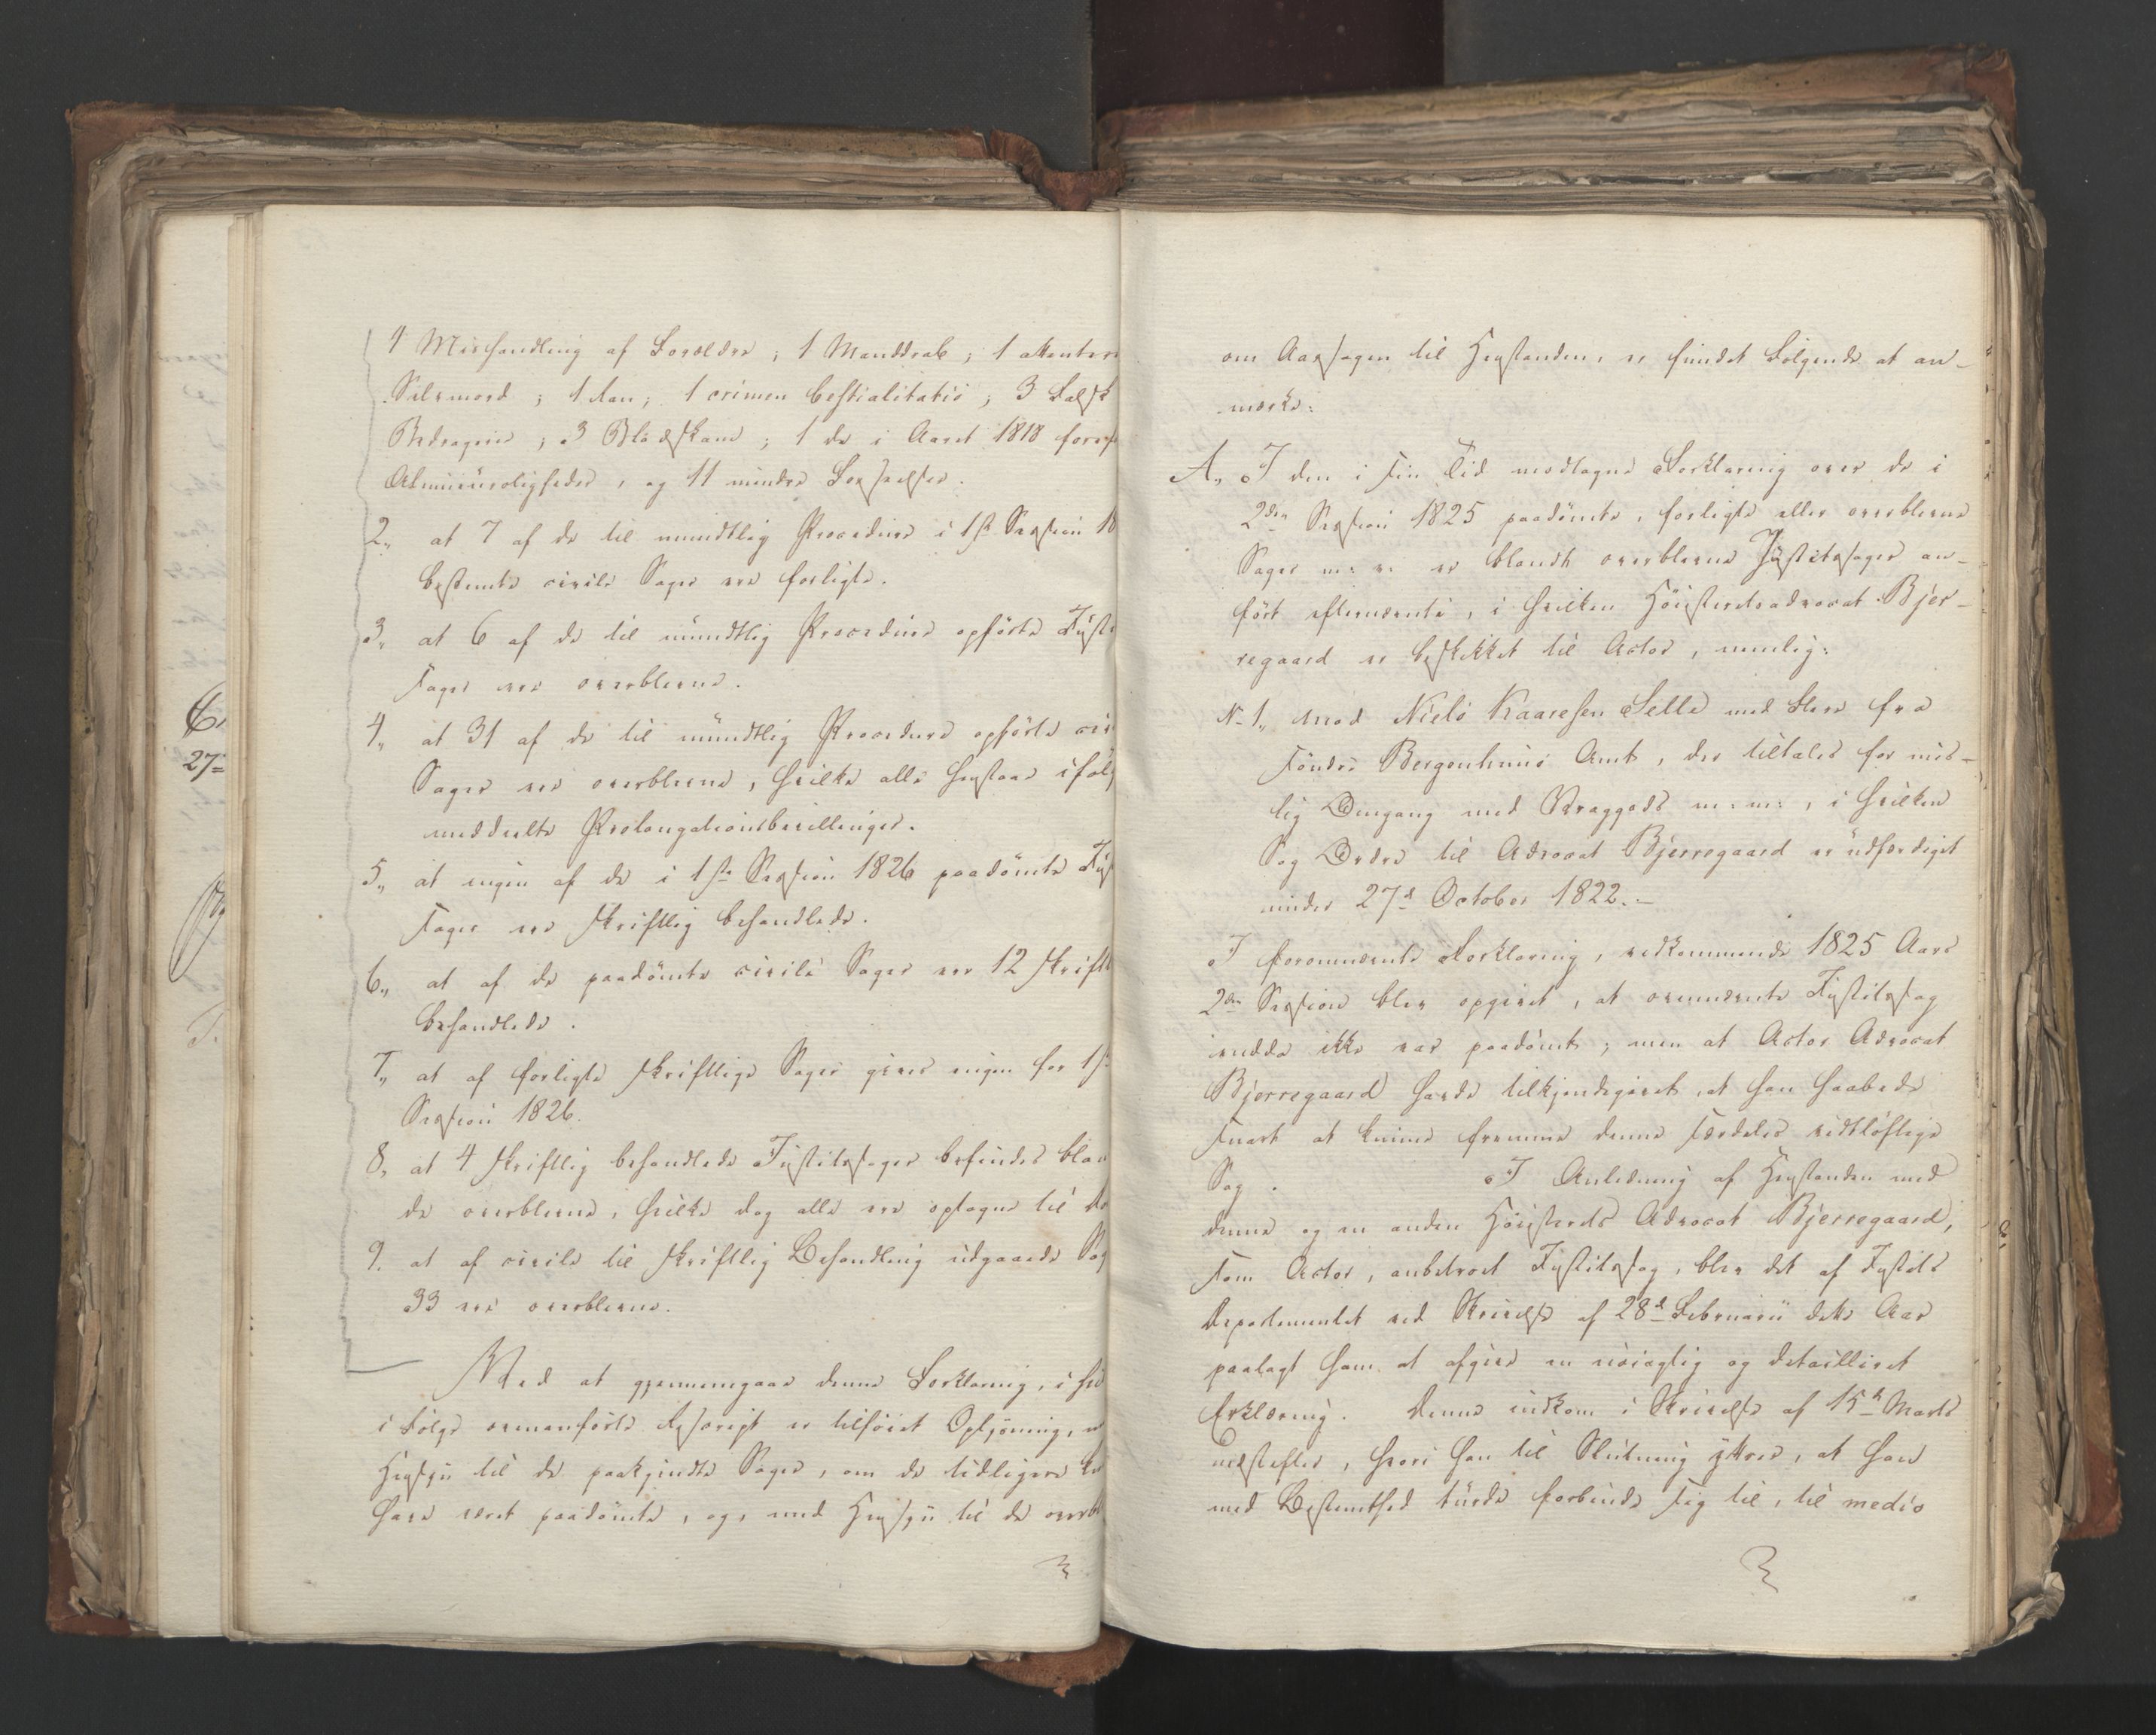 1 Mishandling af Forældre; 1 Manddrab; 1 attenteret
Selvmord; 1 Ran; 1 crimen bestialitatis; 3 Falsk
Bedragerie; 3 Blodskam; 1 de i Aaret 1818
Almueuroligheder, og 11 mindre Forseelser.
2, at 7 af de til mundtlig Procedure i 1ste Session 18
bestemte civile Sager ere forligte.
3, at 6 af de til mundtlig Procedure opførte Justits
sager ere overblevne.
4, at 31 af de til mundtlig Procedure opførte civ
Sager ere overblevne, hvilke alle henstaae ifølg
meddeelte Prolongationsbevillinger.
5, at ingen af de i 1ste Session 1826 paadömte Just
sager ere skriftlig behandlede.
6, at af de paadömte civile Sager ere 12 skriftl
behandlede.
7, at af forligte skriftlige Sager gives ingen for 1ste
Session 1826.
8, at 4 skriftlig behandlede Justitssager befindes bla
de overblevne, hvilke dog alle ere optagne til Do
9. at af civile til skriftlig Behandling udgaaede Sag
33 ere overblevne.
Ved at gjennemgaae denne Forklaring, i hvi
i Følge ovenanførte Rescript er tilføiet Oplysning,
Hensyn til de paakjendte Sager, om de tidligere ku
have været paadömte, og, med Hensyn til de overbl
om Aarsagen til Henstanden, er fundet Følgende at an-
mærke:
A, I den i sin Tid modtagne Forklaring over de i
2den Session 1825 paadömte, forligte eller overblevne
Sager m: v: er blandt overblevne Justitssager an-
ført efternævnte, i hvilken Höiesteretsadvocat Bjer-
regaard er beskikket til Actor, nemlig:
No 1, mod Niels Kaaresen Selle med Flere fra
söndre Bergenhuus Amt, der tiltales for mis-
lig Omgang med Vraggods m: m:, i hvilken
Sag Ordre til Advocat Bjerregaard er udfærdiget
under 27d October 1822.-
I foromnævnte Forklaring, vedkommende 1825 Aars
2den Session blev opgivet, at ovennævnte Justitssag
endda ikke var paadömt; men at Actor Advocat
Bjerregaard havde tilkjendegivet, at han haabede
snart at kunne fremme denne særdeles vidtløftige
Sag. I Anledning af Henstanden med
denne og en anden Höiesterets Advocat Bjerregaard,
som Actor, anbetroet Justitssag, blev det af Justits
Departementet ved Skrivelse af 28d Februarii dette Aar
paalagt ham at afgive en nöiagtig og detailleret
Erklæring. Denne indkom i Skrivelse af 15d Marts
næstefter, hvori han til Slutning yttrer, at han
med Bestemthed turde forbinde sig til, til medio